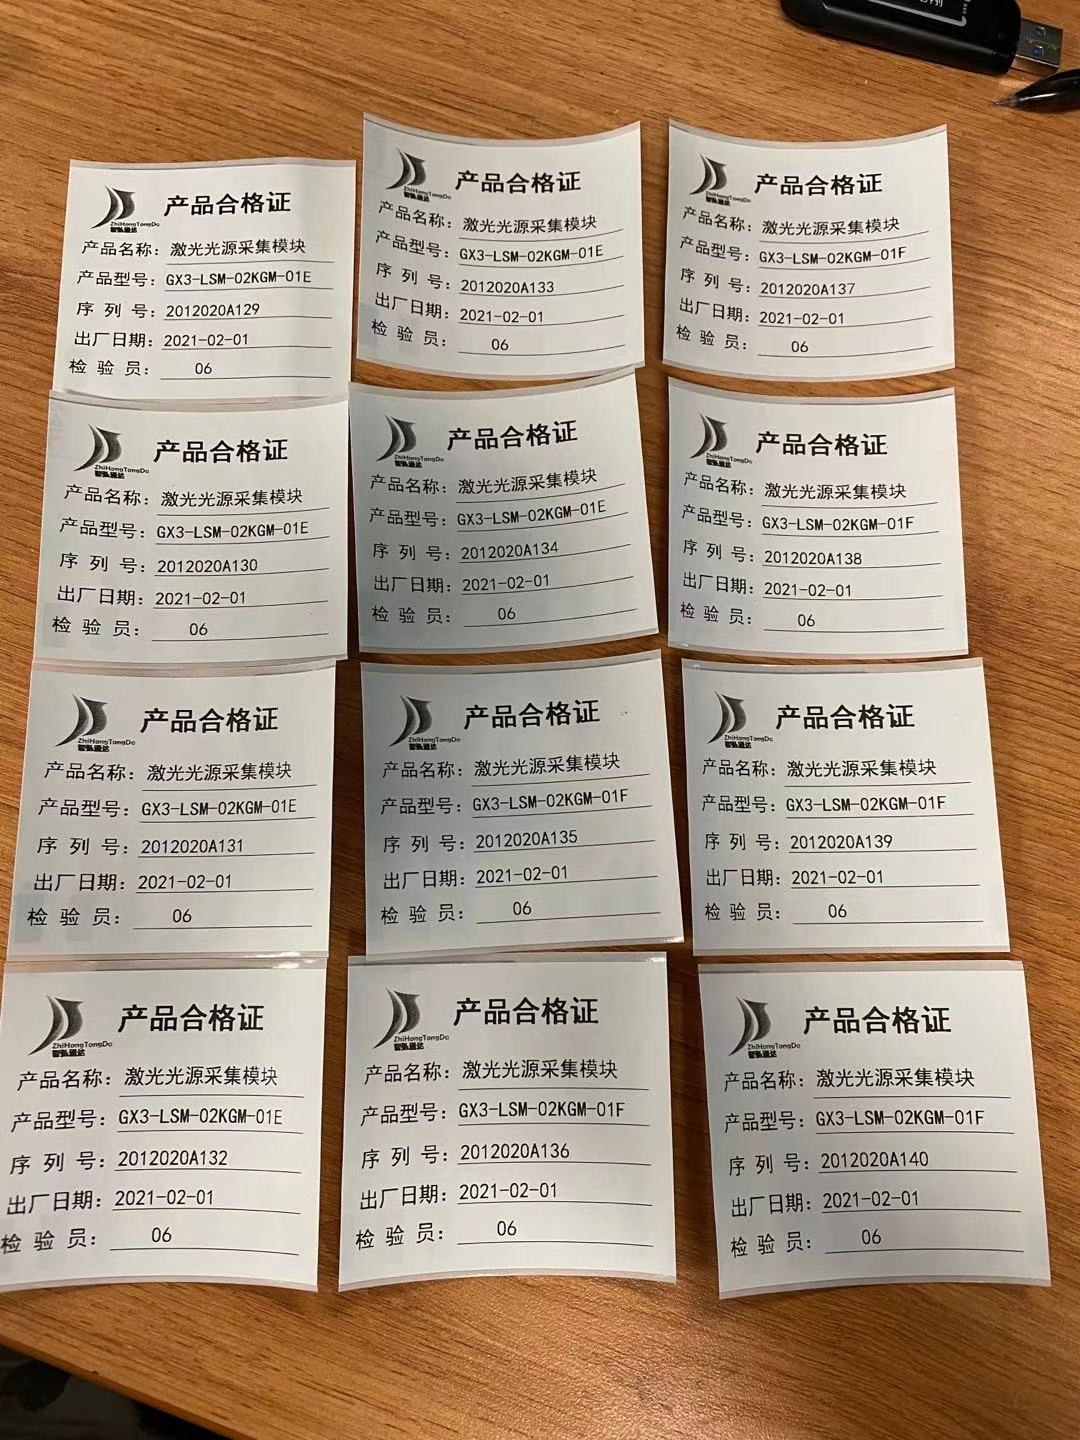 ZhiHongTongDa
智弘通达
产品合格证
产品名称：激光光源采集模块
产品型号：GX3-LSM-02KGM-01E
序 列 号：2012020A129
出厂日期：2021-02-01
检 验 员： 06
ZhiHongTongDa
智弘通达
产品合格证
产品名称：激光光源采集模块
产品型号：GX3-LSM-02KGM-01E
序 列 号：2012020A133
出厂日期：2021-02-01
检 验 员： 06
ZhiHongTongDa
智弘通达
产品合格证
产品名称：激光光源采集模块
产品型号：GX3-LSM-02KGM-01F
序 列 号：2012020A137
出厂日期：2021-02-01
检 验 员： 06
ZhiHongTongDa
智弘通达
产品合格证
产品名称：激光光源采集模块
产品型号：GX3-LSM-02KGM-01E
序 列 号：2012020A130
出厂日期：2021-02-01
检 验 员： 06
ZhiHongTongDa
智弘通达
产品合格证
产品名称：激光光源采集模块
产品型号：GX3-LSM-02KGM-01E
序 列 号：2012020A134
出厂日期：2021-02-01
检 验 员： 06
ZhiHongTongDa
智弘通达
产品合格证
产品名称：激光光源采集模块
产品型号：GX3-LSM-02KGM-01F
序 列 号：2012020A138
出厂日期：2021-02-01
检 验 员： 06
ZhiHongTongDa
智弘通达
产品合格证
产品名称：激光光源采集模块
产品型号：GX3-LSM-02KGM-01E
序 列 号：2012020A131
出厂日期：2021-02-01
检 验 员： 06
ZhiHongTongDa
智弘通达
产品合格证
产品名称：激光光源采集模块
产品型号：GX3-LSM-02KGM-01F
序 列 号：2012020A135
出厂日期：2021-02-01
检 验 员： 06
ZhiHongTongDa
智弘通达
产品合格证
产品名称：激光光源采集模块
产品型号：GX3-LSM-02KGM-01F
序 列 号：2012020A139
出厂日期：2021-02-01
检 验 员： 06
ZhiHongTongDa
智弘通达
产品合格证
产品名称：激光光源采集模块
产品型号：GX3-LSM-02KGM-01E
序 列 号：2012020A132
出厂日期：2021-02-01
检 验 员： 06
ZhiHongTongDa
智弘通达
产品合格证
产品名称：激光光源采集模块
产品型号：GX3-LSM-02KGM-01F
序 列 号：2012020A136
出厂日期：2021-02-01
检 验 员： 06
ZhiHongTongDa
智弘通达
产品合格证
产品名称：激光光源采集模块
产品型号：GX3-LSM-02KGM-01F
序 列 号：2012020A140
出厂日期：2021-02-01
检 验 员： 06